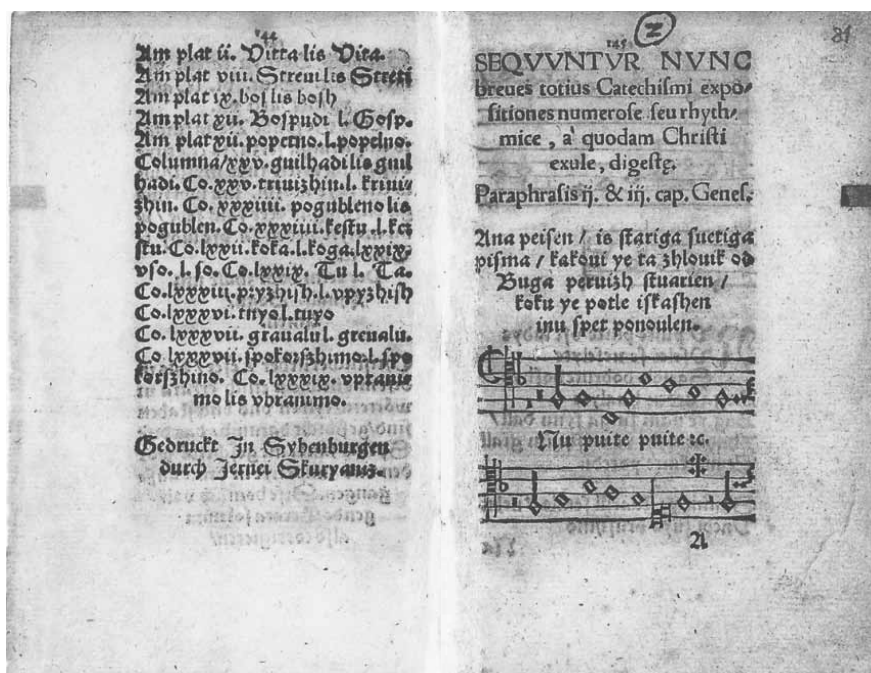 144
Am plat ii. Vitta lis Vita.
Am plat viii. Streui lis Streti
Am plat ix. bos lis bosh
Am plat xii. Bospudi l. Gosp.
Am plat xii. popetno. l. popelno.
Columna/xxv. guilhadi lis guil
hadi. Co. xxv. triuizhin. l. kriui-
zhin. Co. xxxiiii. pogubleno lis
pogublen. Co. xxxiiii. kestu. l. kri
stu. Co. lxxii. koka. l. koga. lxxix.
vso. l. so. Co. lxxix. Tu l. Ta.
Co. lxxxiii. pryzhish. l. vpyzhish
Co. lxxxvi. tnyo l. tuyo
Co. lxxxvii. graualu l. greualu.
Co. lxxxvii. spokorszhimo. l. spo
korszhino. Co. lxxxix. vpranie
mo lis vbranimo.
Gedruckt In Sybenburgen
durch Jernei Skuryaniz.
145
2
81
SEQVVNTVR NVNC
breues totius Catechismi expo/
sitiones numerose seu rhyth/
mice, a' quodam Christi
exule, digestę.
Paraphrasis ij. & iij. cap. Genes.
Ana peisen / is stariga suetiga
pisma / kakoui ye ta zhlouik od
Buga peruizh stuarien /
koku ye potle iskashen
inu spet ponoulen.
Nu puite puite ꝛc.
A